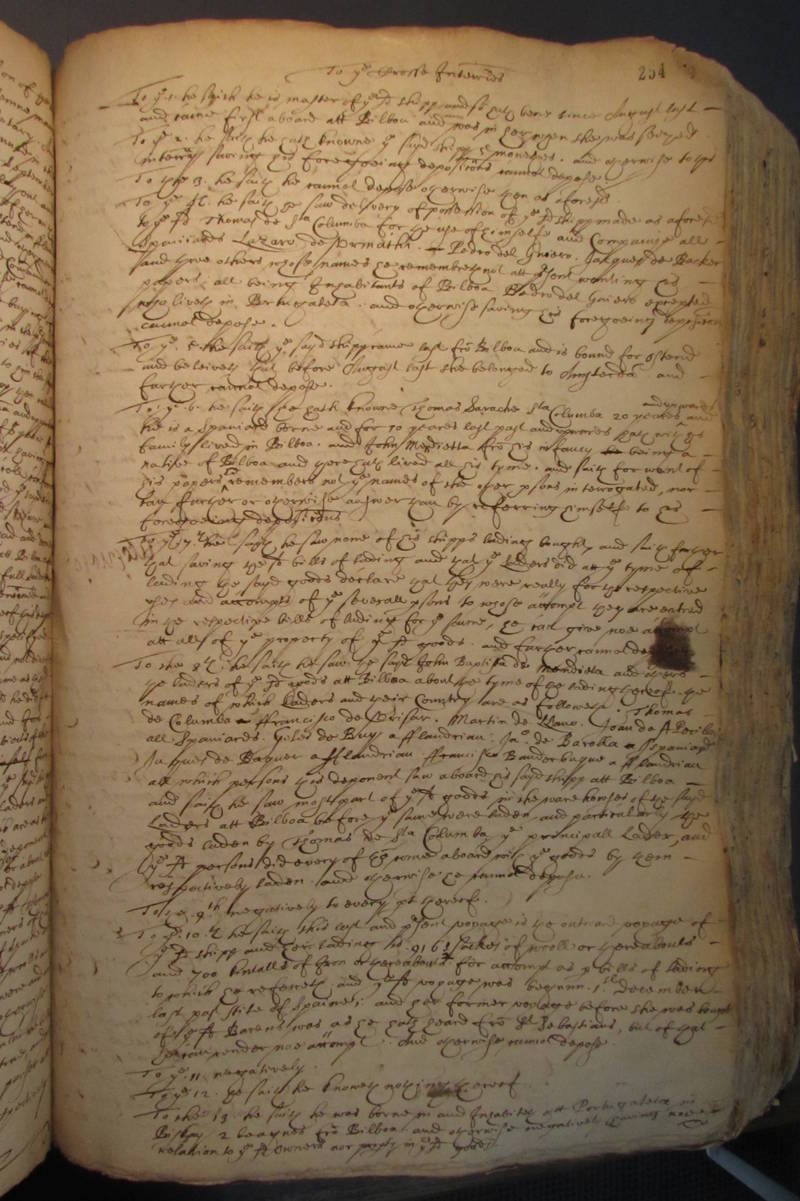 To ye Crosse Interries
254
To ye 1. he saith he is master of ye sd shipp and soe hath bene since August last
and came first aboard att Bilboa and was in her when she was seized
To ye 2. he saith he hath knowne ye sayd shipp moneths. and otherwise to this
Interry saving his foregoeing deposition cannot depose
To the 3. he saith he cannot depose otherwise then as aforesd
To ye 4. he saith he saw delivery of possession of ye sd shipp made as afore
to ye sd Thomas de Sta Columba for the use of himselfe and Companie all
Spaniards Lazaro de Pedro del Jaques de Backer
and three others whose names he remembreth not att present wanting his
papers, all being Inhabitants of Bilboa Pedro del excepted
who liveth in Portugaleta. and otherwise saving his foregoeing deposition
cannot depose.
To ye 5. he saith ye sayd shipp came last from Bilboa and is bound for Ostend
and beleiveth that before August last she belonged to Amsterda and
farther cannot depose.
To ye 6. he saith he hath knowne Thomas Sta Columba 20 yeares and upwards
he is a Spaniard borne and for 10 yeares last past and upwards hath with his
family lived in Bilboa. and John Mendietta from his infancy being a
native of Bilboa and there hath lived all his tyme. and saith for want of
his papers remembers not ye names of the other psons interrogated, nor
can farther or otherwise answer than by referring himselfe to his
foregoeing depositions
To ye 7th he saith he saw none of his shipps lading bought, and saith farther
that saving the sd bills of lading and that ye Laders did att ye tyme of
lading the sayd goods declare that they were really for the respective
and accompts of ye severall psons to whose accompt they are entred
in the respective bills of lading for ye same, he can give noe accompt
att all of ye property of ye sd goods. and farther cannot de
To the 8th. he saith he saw the sayd John Baptista de Mendieta and others
the laders of ye sd goods att Bilboa about the tyme of the lading thereof. the
names of which Laders and their Country are as followeth. Thomas
de Columba Francisco de Martin de Llano. Joan de
all Spaniards. Giles de Buy a fflandrian. Jno. de Barolla a Spaniard
Jaques de Baquer a fflandrian ffrancisco Banderbuque a fflandrian
all which persons this deponent saw aboard his sayd shipp att Bilboa
and saith he saw most part of ye sd goods in the ware howses of the sayd
Laders att Bilboa before ye same were laden and particularly the
goods laden by Thomas de Sta Columba ye principall Lader, and
ye sd persons did every of them come aboard with ye goods by them
respectively laden. and otherwise he cannot depose.
To the 9th negatively to every pt thereof.
To ye 10th he saith this last and psent voyage is the outward voyage of
ye sd shipp and her ladeing is 916 sackes of wooll or thereabouts
and 700 kintalls of Iron or thereabouts for accompt as p bills of lading
to which he referreth, and ye sd voyage was begunn 1st december
last past stile of Spaine; and her former voyage before she was bought
of ye sd Barens was as he hath heard from St Sebastians, but of that
he can render noe accompt. And otherwise cannot depose.
To ye 11 negatively.
To ye 12. he saith he knoweth nothing thereof
To the 13. he saith he was borne in and Inhabites att Portugaleta in
Biskay 2 leagues from Bilboa, and otherwise negatively having noe
relation to ye sd owners nor ppty in ye sd goods